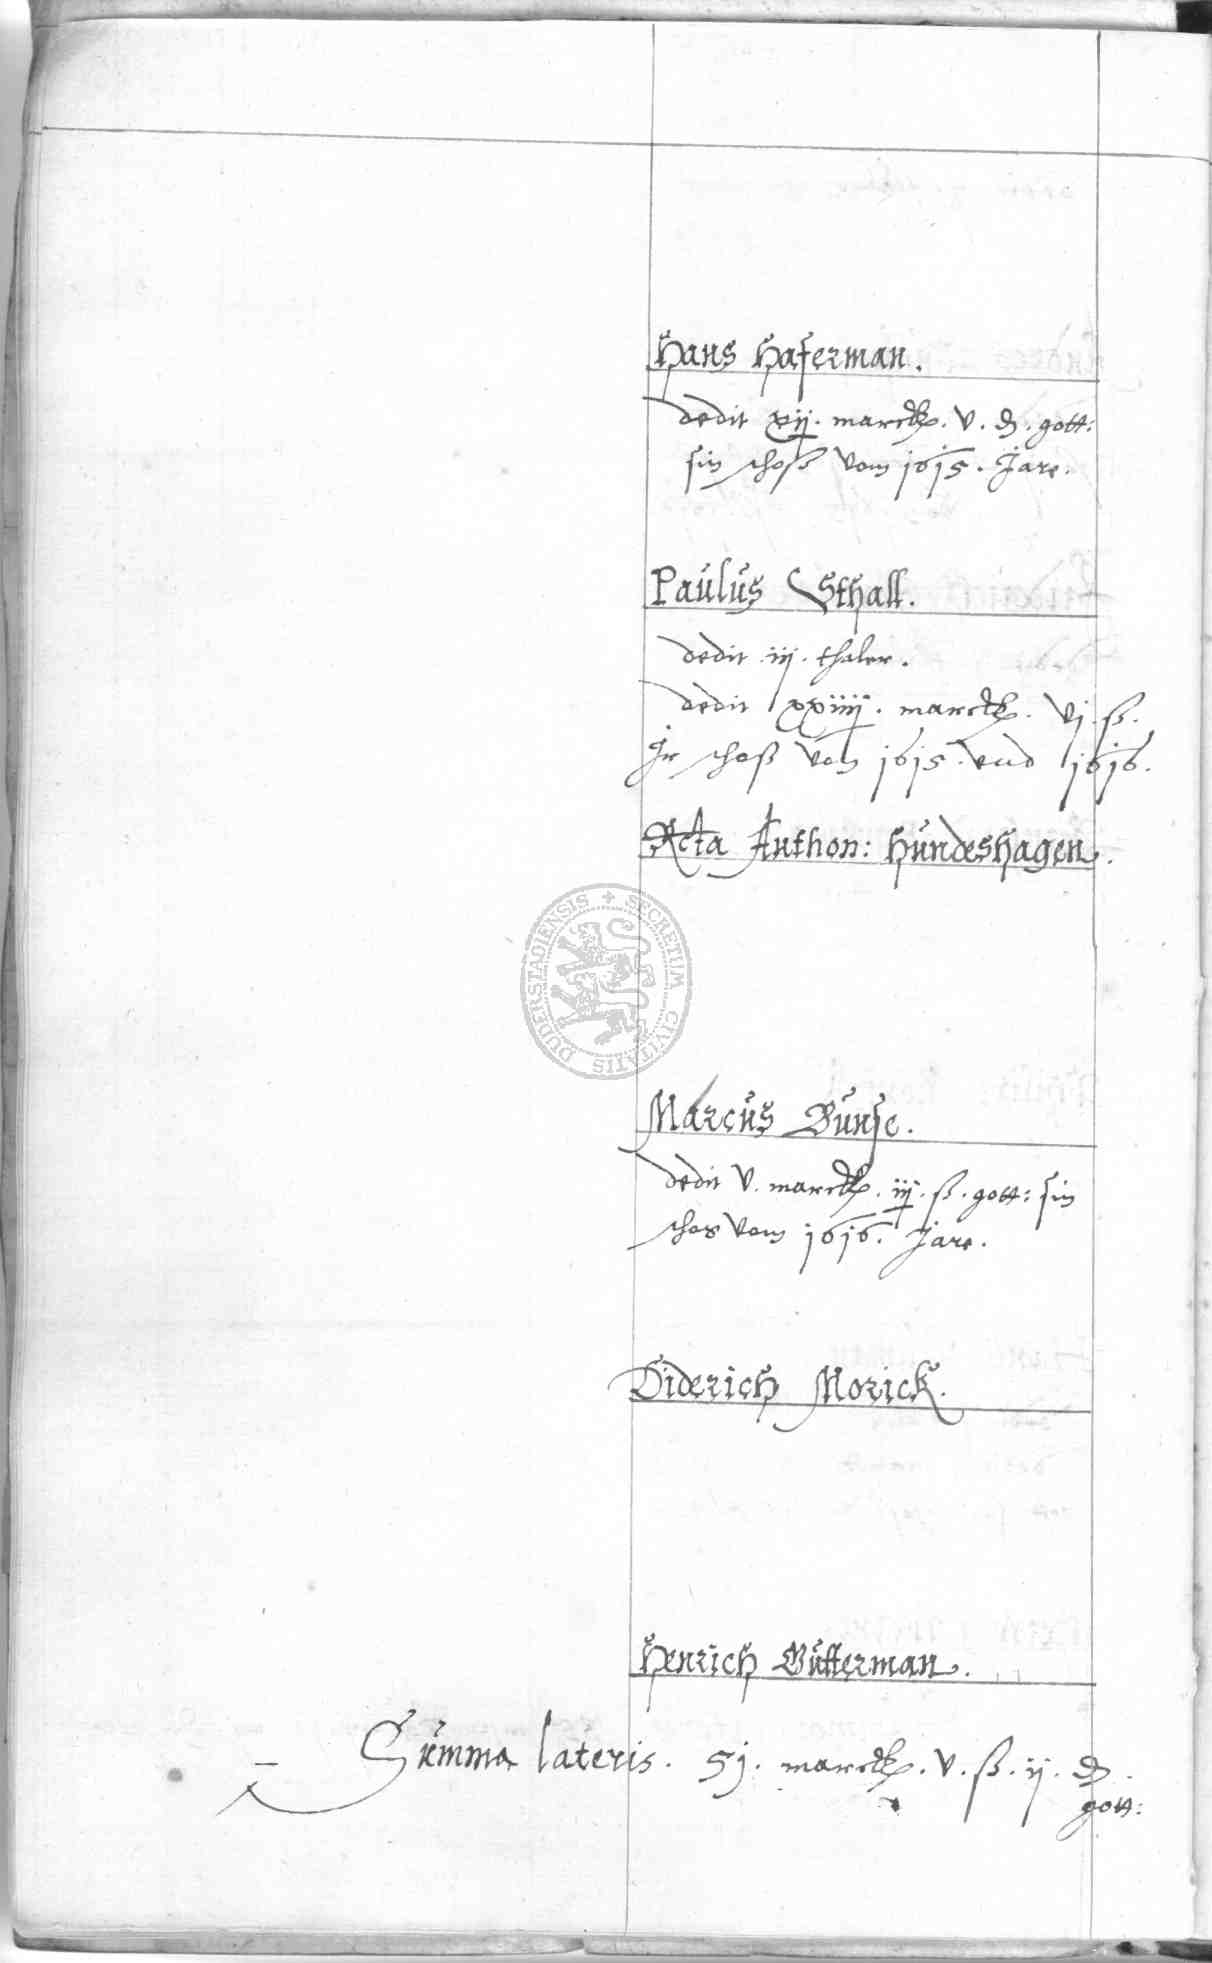 Hans Haferman.
dedit xij. marck. v. ₰. gott:
sin schoß vom 1615. Jare.
Paulus Sthall.
dedit iij. thaler.
dedit xxiiij. marck. vj. ß.
Ir schoß von 1615. und 1616.
Rcta Anthon: Hundeshagen.
SECRETUM CIVITATIS DUDERSTADIENSIS
Marcus Bunse.
dedit v. marck. iij. ß. gott: sin
schos vom 1616. Jare.
Diderich Morick.
Henrich Butterman.
Summa lateris. 51. marck. v. ß. ij. ₰.
gott: